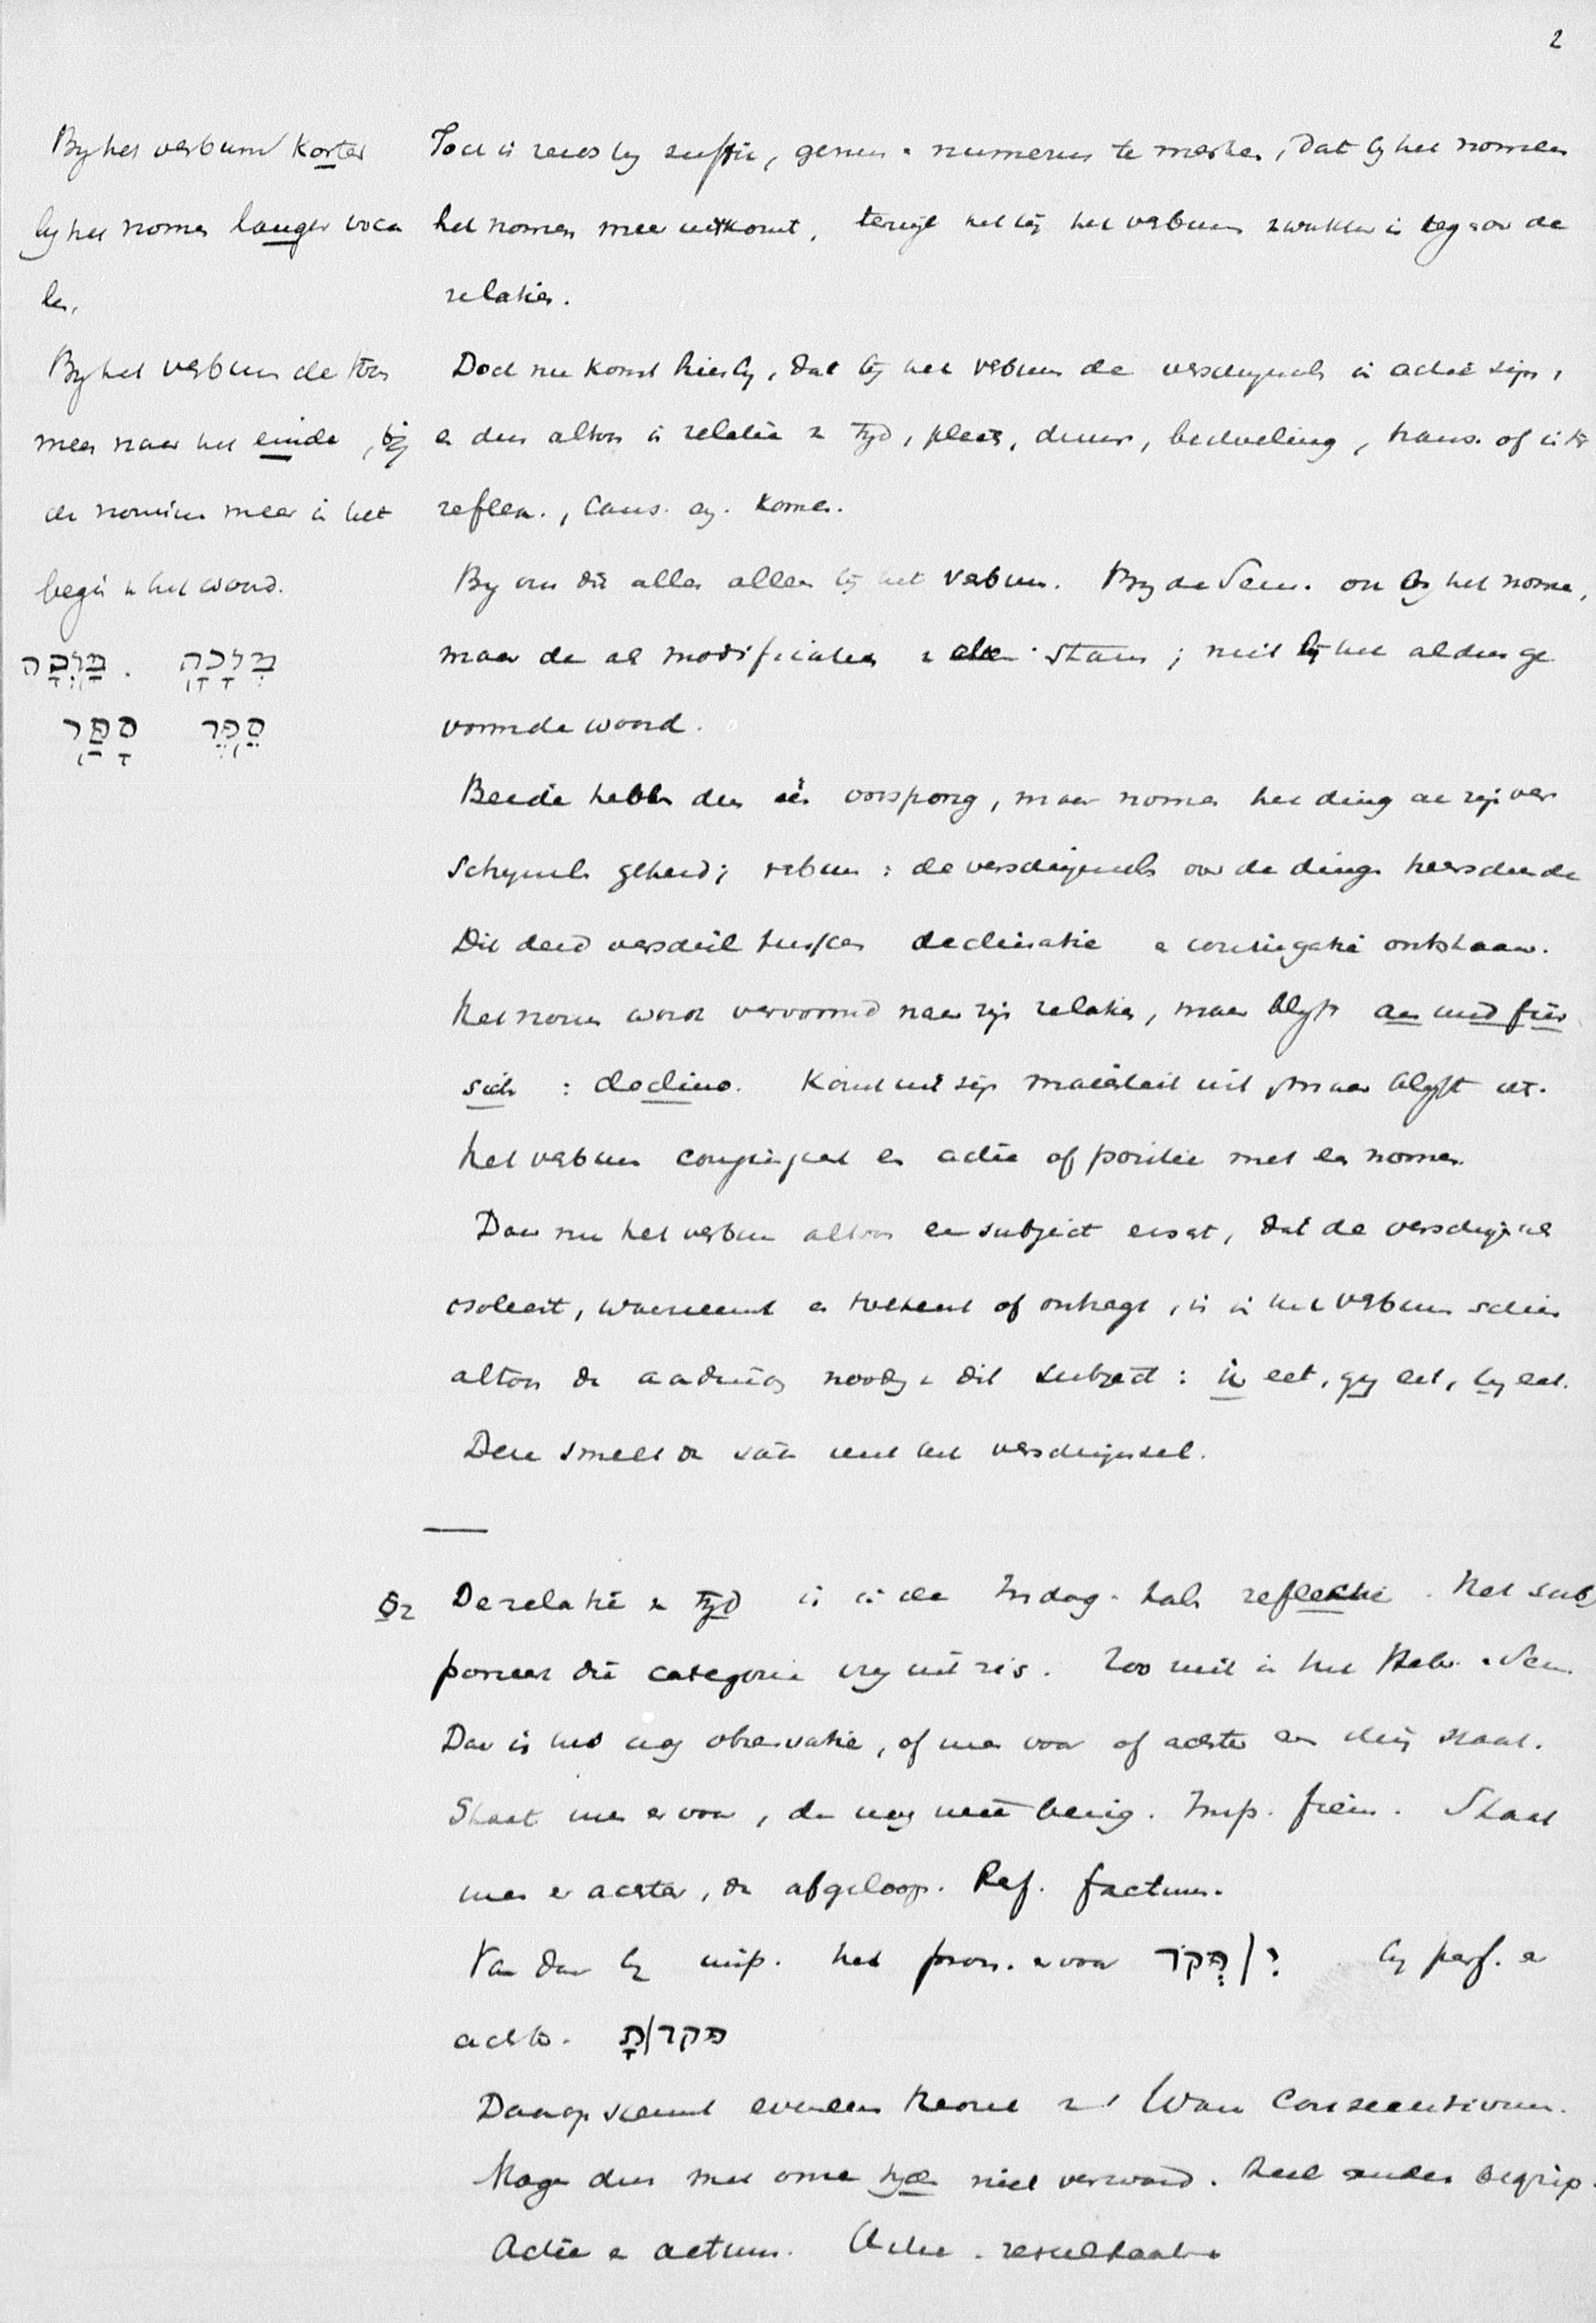 2
By het verbum korter
by het nomen langer voca
len.
By het verbum de toon
meer naar het einde, bij
de nomina meer in het
begin v het woord.
מְלָכָה . מַלְכָּה
סֵפֶר סָפַר
Toch is reeds by suffix, genus . numerus te merken, dat by het nomen
het nomen meer uitkomt, terwijl het bij het verbum zwakker is tegenover de
relaties.
Doch nu komt hierby, dat bij het verbum de verschynsels in actie zijn,
en dus altoos in relatie v tyd, plaats, duur, bedoeling, trans. of intr
reflex., Caus. ez. komen.
By ons dit alles alleen bij het verbum. By de Sem. ook by het nomen,
maar dan als modificaties v den stam; niet bij het aldus ge
vormde woord.
Beide hebben dus één oorsprong, maar nomen het ding aan zijn ver
schynsels gekend; verbum: de verschijnsels over de dingen heerschende
Dit deed verschil tusschen declinatie en coniugatie ontstaan.
Het nomen word vervormd naar zijn relaties, maar blyft an und für
sich: declino. Komt uit zijn majesteit uit, maar blyft
Het verbum een actie of positie met een nomen.
Daar nu het verbum altoos een subject eischt, dat de verschijnsel
isoleert, waarneemt en toekent of ontzegt, is in het verbum schier
altoos de aanduiding noodig v dit subject: ik eet, gy eet, hy eet.
Deze smelt dan samen met het verschijnsel.
§2 De relatie v tyd is in de Indog. talen reflexie. Het subj
poneert die categorie vry uit zich. Zoo niet in het Hebr. . Sem.
Daar is het nog observatie, of men voor of achter een ding staat.
Staat men er voor, dan nog niet bezig. Imp. fiens. Staat
men er achter, dan afgeloopen. Perf. factum.
Van daar by imp. het pron. er voor יִ/פְקֹד by perf. er
achter. פקד/תָּ
Daarop steunt eveneens theorie v 't Waw Consecutivum.
Mogen dus met onze tyden niet verward. Heel ander begrip.
Actie en actum. Actie . resultaat.